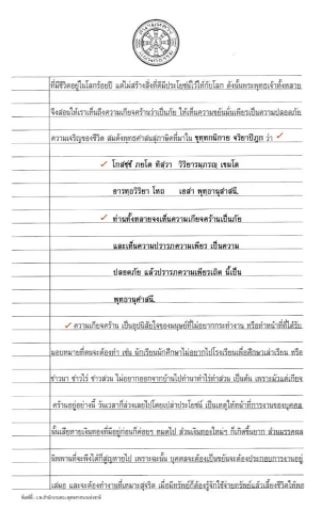 ที่มีชีวิตอยู่ในโลกร้อยปี แต่ไม่สร้างสิ่งที่มีประโยชน์ไว้ให้กับโลก ดังนั้นพระพุทธเจ้าทั้งหลาย
จึงสอนให้เราเห็นถึงความเกียจคร้านว่าเป็นภัย ให้เห็นความขยันหมั่นเพียรเป็นความปลอดภัย
ความเจริญของชีวิต สมดังพุทธศาสนสุภาษิตที่มาใน ขุททกนิกาย จริยาปิฎก ว่า
โกสชฺชํ ภยโต ทิสฺวา วิริยารมฺภญฺจ เขมโต
อารทฺธวิริยา โหถ เอสา พุทฺธานุสาสนี.
ท่านทั้งหลายจงเห็นความเกียจคร้านเป็นภัย
และเห็นความปรารภความเพียร เป็นความ
ปลอดภัย แล้วปรารภความเพียรเถิด นี้เป็น
พุทธานุศาสนี.
ความเกียจคร้าน เป็นอุปนิสัยใจของมนุษย์ที่ไม่อยากกระทำงาน หรือทำหน้าที่ที่ได้รับ
มอบหมายที่ตนจะต้องทำ เช่น นักเรียนนักศึกษาไม่อยากไปโรงเรียนเพื่อศึกษาเล่าเรียน หรือ
ชาวนา ชาวไร่ ชาวสวน ไม่อยากออกจากบ้านไปทำนาทำไร่ทำสวน เป็นต้น เพราะมัวแต่เกียจ
คร้านอยู่อย่างนี้ วันเวลาก็ล่วงเลยไปโดยเปล่าประโยชน์ เป็นเหตุให้หน้าที่การงานของบุคคล
นั้นเสียหายเงินทองที่มีอยู่ก่อนก็ค่อยๆ หมดไป ส่วนเงินทองใหม่ๆ ก็เกิดขึ้นยาก ส่วนมรรคผล
นิพพานที่จะพึงได้ก็สูญหายไป เพราะฉะนั้น บุคคลจะต้องเป็นขยันจะต้องประกอบการงานอยู่
เสมอ และจะต้องทำงานที่เหมาะสุจริต เมื่อมีทรัพย์ก็ต้องรู้จักใช้จ่ายทรัพย์แล้วเลี้ยงชีวิตให้พอ